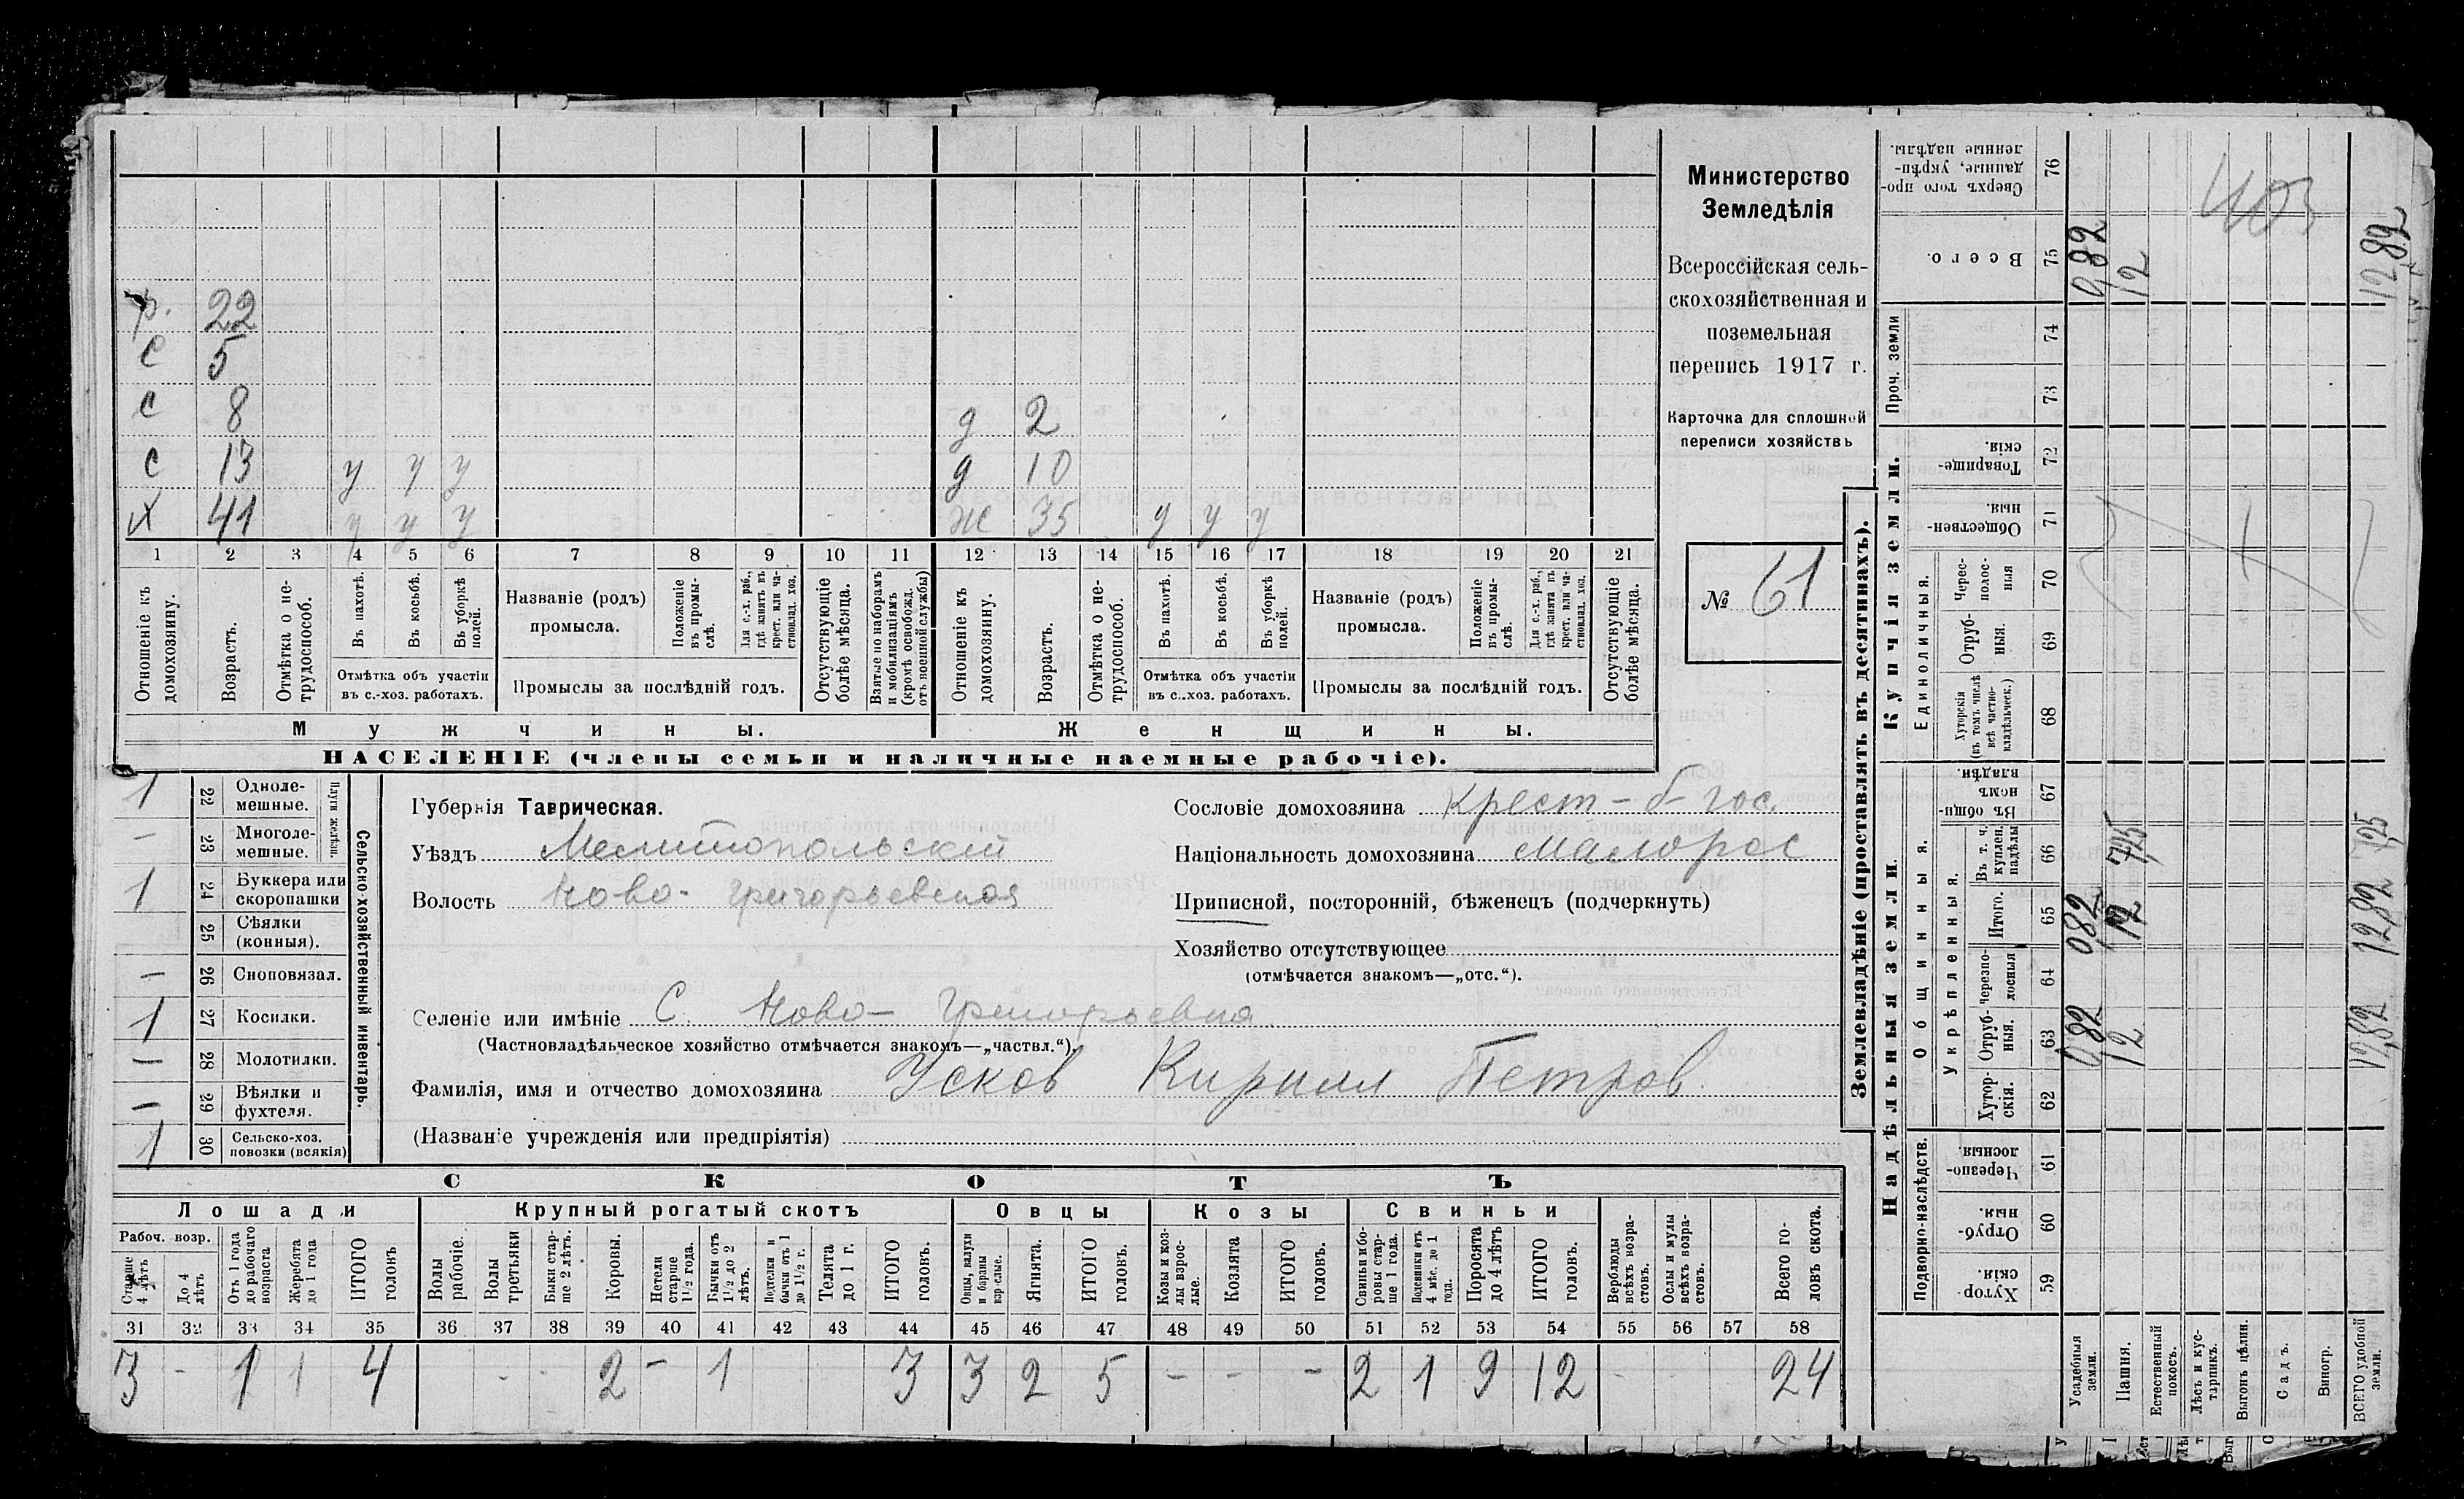 Министерство
Земледѣлія
Всероссійская сель-
скохозяйственная и
поземельная
перепись 1917 г.
Карточка для сплошной
переписи хозяйствъ
№ 61
р. 22
с 5
с 8 д 2
с 13 у у у д 10
х 41 у у у ж 35 у у у
1 2 3 4 5 6 7 8 9 10 11 12 13 14 15 16 17 18 19 20 21
Отношеніе къ домохозяину.
Возрастъ.
Отмѣтка о не-трудоспособ.
Въ пахотѣ.
Въ косьбѣ.
Въ уборкѣ полей.
Отмѣтка объ участіи въ с.-хоз. работахъ.
Названіе (родъ) промысла.
Положеніе въ промы-слѣ.
Для с.-х. раб., гдѣ занятъ въ крест. или ча-стновлад. хоз.
Промыслы за послѣдній годъ.
Отсутствующіе болѣе мѣсяца.
Взятые по наборамъ и мобилизаціямъ (кромѣ освобожд. отъ военной службы)
Отношеніе къ домохозяину.
Возрастъ.
Отмѣтка о не-трудоспособ.
Въ пахотѣ.
Въ косьбѣ.
Въ уборкѣ полей.
Отмѣтка объ участіи въ с.-хоз. работахъ.
Названіе (родъ) промысла.
Положеніе въ промы-слѣ.
Для с.-х. раб., гдѣ занята въ крест. или ча-стновлад. хоз.
Промыслы за послѣдній годъ.
Отсутствующіе болѣе мѣсяца.
Мужчины.
Женщины.
НАСЕЛЕНІЕ (члены семьи и наличные наемные рабочіе).
Сельско-хозяйственный инвентарь.
Плуги желѣзн.
1 22 Однолемешные.
– 23 Многолемешные.
1 24 Буккера или скоропашки
25 Сѣялки (конныя).
– 26 Сноповязал.
1 27 Косилки.
– 28 Молотилки.
– 29 Вѣялки и фухтеля.
1 30 Сельско-хоз. повозки (всякія)
Губернія Таврическая.
Уѣздъ Мелитопольскій
Волость Ново-Григорьевская
Сословіе домохозяина Крест-б-гос.
Національность домохозяина Малорос
Приписной, посторонній, бѣженецъ (подчеркнуть)
Хозяйство отсутствующее
(отмѣчается знакомъ—„отс.“).
Селеніе или имѣніе С. Ново-Григорьевка
(Частновладѣльческое хозяйство отмѣчается знакомъ—„частвл.“).
Фамилія, имя и отчество домохозяина Усков Кирилл Петров.
(Названіе учрежденія или предпріятія)
СКОТЪ
Лошади Крупный рогатый скотъ Овцы Козы Свиньи
Рабоч. возр.
Старше 4 лѣтъ
До 4 лѣтъ
Отъ 1 года до рабочаго возраста
Жеребята до 1 года
ИТОГО головъ
Волы рабочіе.
Волы третьяки
Быки стар-ше 2 лѣтъ.
Коровы.
Нетели старше 1½ года.
Бычки отъ 1½ до 2 лѣтъ.
Подтелки и бычки отъ 1 до 1½ г.
Телята до 1 г.
ИТОГО головъ.
Овцы, валухи и бараны взрослые.
Ягнята.
ИТОГО головъ.
Козы и коз-лы взрос-лые.
Козлята
ИТОГО головъ.
Свиньи и бо-ровы стар-ше 1 года.
Подсвинки отъ 4 мѣс. до 1 года.
Поросята до 4 лѣтъ
ИТОГО головъ.
Верблюды всѣхъ возра-стовъ.
Ослы и мулы всѣхъ возра-стовъ.
Всего го-ловъ скота.
31 32 33 34 35 36 37 38 39 40 41 42 43 44 45 46 47 48 49 50 51 52 53 54 55 56 57 58
3 - 1 1 4 - - 2 - 1 3 3 2 5 - - - 2 1 9 12 - - 24
Землевладѣніе (проставлять въ десятинахъ).
Купчія земли.
Надѣльныя земли.
Сверхъ того про-данные, укрѣп-ленные надѣлы. 76
Всего. 75 0,82 12 12 82
Проч. земли 74 73
Товарище-скія. 72
Обществен-ныя. 71
Единоличныя.
Черес-полос-ныя 70
Отруб-ныя. 69
Хуторскія (въ томъ числѣ всѣ частно-владѣльческ.) 68
Общинныя.
Въ общин-номъ владѣн. 67
Укрѣпленныя.
Въ т. ч. куплен. надѣлы 66 7,25 7,25
Итого. 65 0,82 12 12,82
Черезпо-лосныя 64
Отруб-ныя. 63 0,82 12 12,82
Хутор-скія. 62
Подворно-наслѣдств.
Черезпо-лосныя. 61
Отруб-ныя. 60
Хутор-скія. 59
Усадебныя земли.
Пашня.
Естественный покосъ.
Лѣсъ и кус-тарникъ.
Выгонъ цѣлин.
Садъ.
Виногр.
ВСЕГО удобной земли.
403